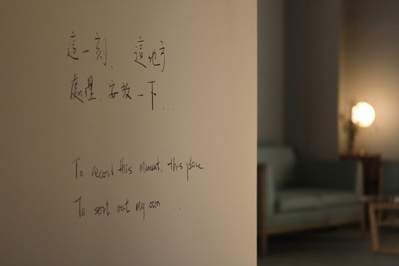 這一刻、這地方
處理、安放一下...
To record this moment, this place
To sort out my own ...